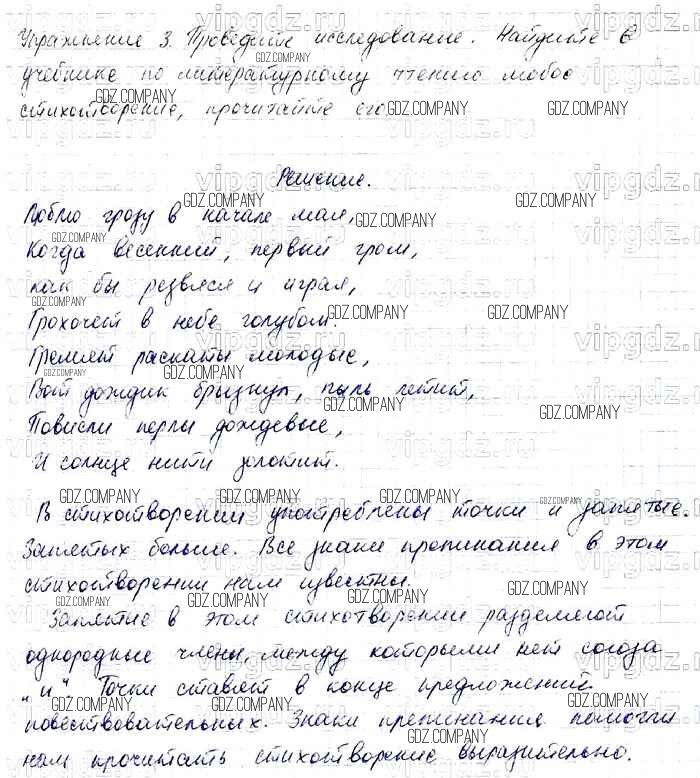 Упражнение 3. Проведите исследование. Найдите в
учебнике по литературному чтению любое
стихотворение, прочитайте его.
Решение.
Люблю грозу в начале мая,
Когда весенний, первый гром,
как бы резвяся и играя,
Грохочет в небе голубом.
Гремят раскаты молодые,
Вот дождик брызнул, пыль летит,
Повисли перлы дождевые,
И солнце нити золотит.
В стихотворении употреблены точки и запятые.
Запятых больше. Все знаки препинания в этом
стихотворении нам известны.
Запятые в этом стихотворении разделяют
однородные члены, между которыми нет союза
„и". Точки ставят в конце предложений
повествовательных. Знаки препинания помогли
нам прочитать стихотворение выразительно.